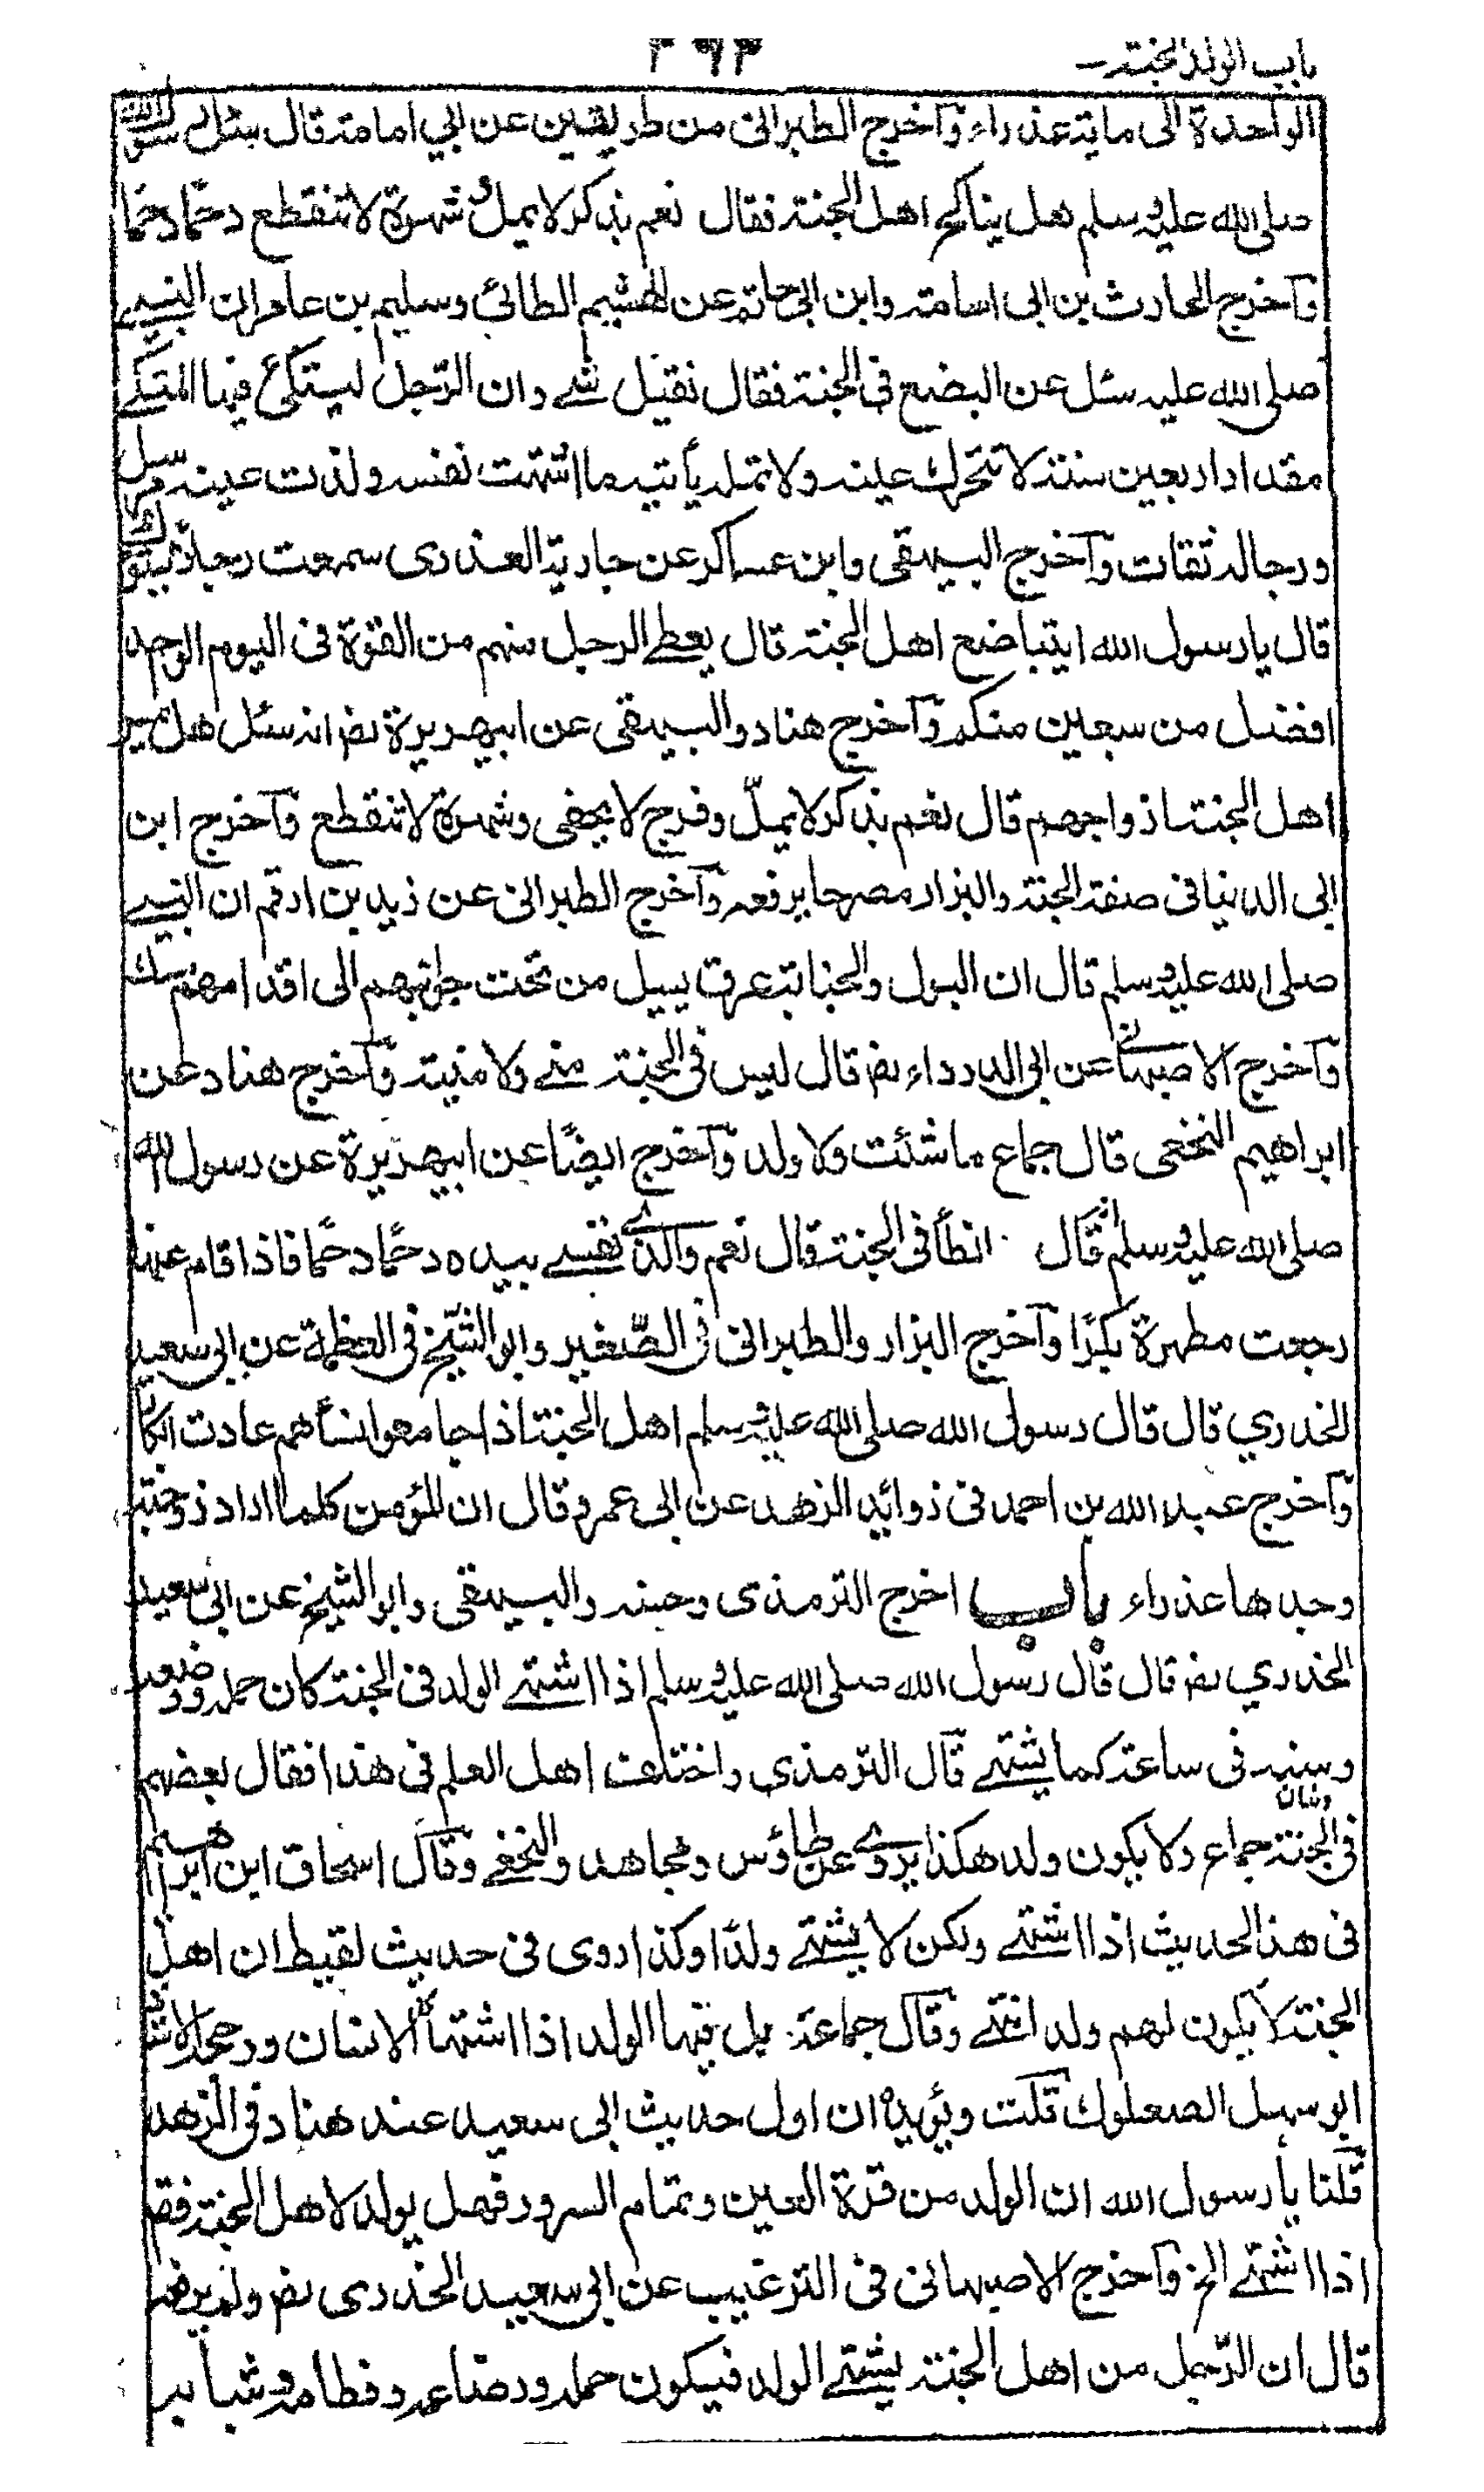 باب الولد الجنة
٣٦٣
الواحدة الى ماية عذراء وآخرج الطبرانى من طريقين عن ابي امامة قال سئل رسول الله
صلى الله عليه وسلم هل يناكح اهل الجنة فقال نعم بذكر لا يمل وشهوة لا تنقطع دحما دحما
وآخرج الحارث بن ابى اسامة وابن ابى حاتم عن الهشيم الطائى وسليم بن عامر ان النبي
صلى الله عليه سئل عن البضع فى الجنة فقال نقبل شے وان الرجل ليتكئ فيها المتكے
مقدار اربعين سنة لا تتحرك عينه ولا تمله يأتيه ما اشتهت نفسه ولذت عينه مرسل
ورجاله ثقات وآخرج البيهقى وابن عساكر عن جارية العذرى سمعت رجلا بتبوك
قال يا رسول الله ايتباضع اهل الجنة قال يعطے الرجل منهم من القوة فى اليوم الوحد
افضل من سبعين منكم وآخرج هناد والبيهقى عن ابيهريرة رضى انه سئل هل يمس
اهل الجنة ازواجهم قال نعم بذكر لا يمل وفرج لا يحفى وشهوة لا تنقطع وآخرج ابن
ابى الدنيا فى صفة الجنة والبزار مصرحا برفعه وآخرج الطبرانى عن زيد بن ارقم ان النبي
صلى الله عليه وسلم قال ان البول والجنابة عرق يسيل من تحت جوانبهم الى اقدامهم مسك
وآخرج الاصبهانے عن ابى الدرداء رضى قال ليس فى الجنة منے ولا منية وآخرج هناد عن
ابراهيم النخعى قال جماع ما شئت ولا ولد وآخرج ايضًا عن ابيهريرة عن رسول الله
صلى الله عليه وسلم قال انطأ فى الجنة قال نعم والذے نفسے بيده دحما دحما فاذا قام عنها
رجعت مطهرة بكرًا وآخرج البزار والطبرانى فى الصغير وابو الشيخ فى العظمة عن ابى سعيد
الخدري قال قال رسول الله صلى الله عليه وسلم اهل الجنة اذا جامعوا نسأهم عادت ابكارا
وآخرج عبد الله بن احمد فى زوائد الزهد عن ابى عمرو قال ان المؤمن كلما اراد زوجته
وجدها عذراء باب اخرج الترمذى وحسنه والبيهقى وابو الشيخ عن ابى سعيد
الخدري رضى قال قال رسول الله صلى الله عليه وسلم اذا اشتهے الولد فى الجنة كان حمله ووضعه
وسنه فى ساعة كما يشتهے قال الترمذى واختلف اهل العلم فى هذا فقال بعضهم
فى الجنة جماع ولا يكون ولد هكذا يروے عن طاؤس ومجاهد والنخعے وقال اسحاق ابن ابراهيم
فى هذا الحديث اذا اشتهے ولكن لا يشتهے ولدًا وكذا روى فى حديث لقيط ان اهل
الجنة لا يكون لهم ولد انتهے وقال جماعة بل فيها الولد اذا اشتهاه الانسان ورجحه الاستاذ
ابو سهل الصعلوك قلت ويؤيده ان اول حديث ابى سعيد عند هناد فى الزهد
قلنا يأرسول الله ان الولد من قرة العين وتمام السرور فهل يولد لاهل الجنة فقم
اذا اشتهے الخ وآخرج الاصبهانى فى الترغيب عن ابى سعيد الخدرى رضى ولم يرفعه
قال ان الرجل من اهل الجنة يشتهے الولد فيكون حمله ورضاعه وفطامه وشبابه